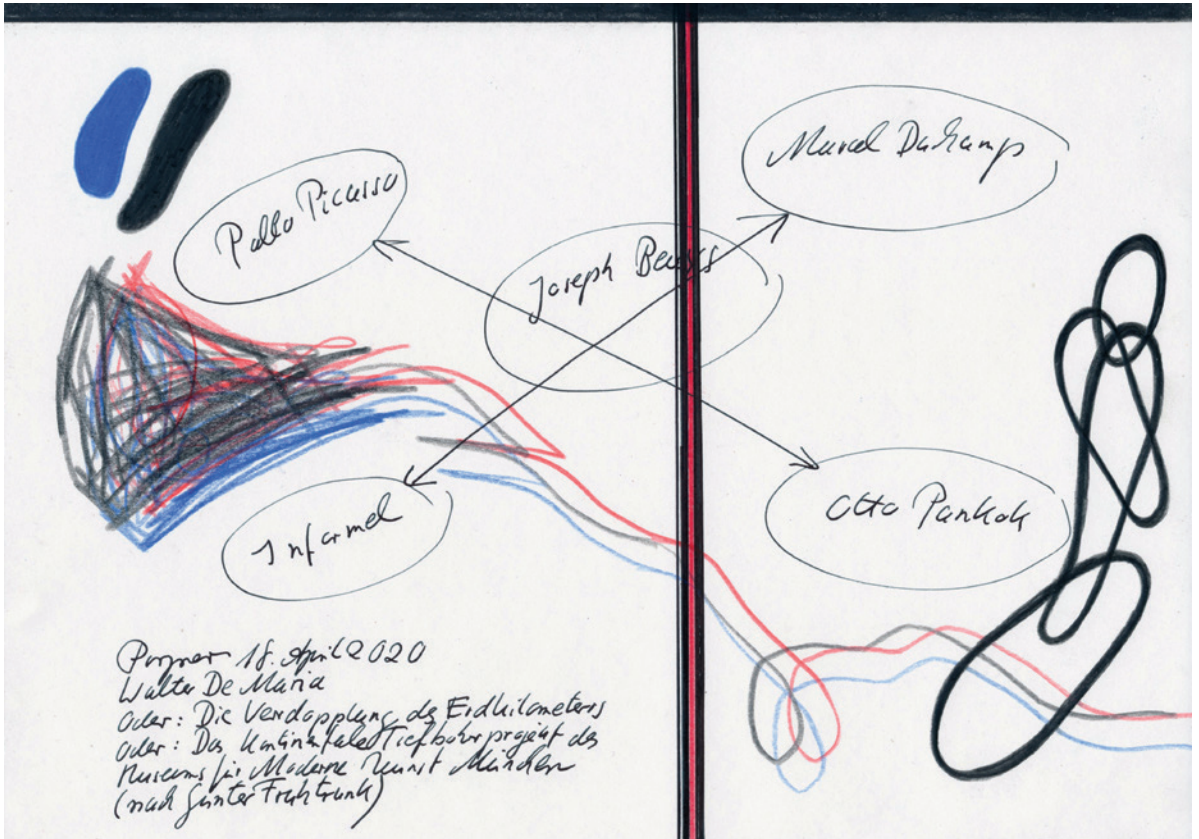 Pablo Picasso
Marcel Duchamp
Joseph Beuys
Informel
Otto Pankok
18. April 2020
Walter De Maria
oder: Die Verdopplung des Erdkilometers
oder: Das Kontinentale Tiefbohrprojekt des
Museums für Moderne Kunst München
(nach Günter Fruhtrunk)